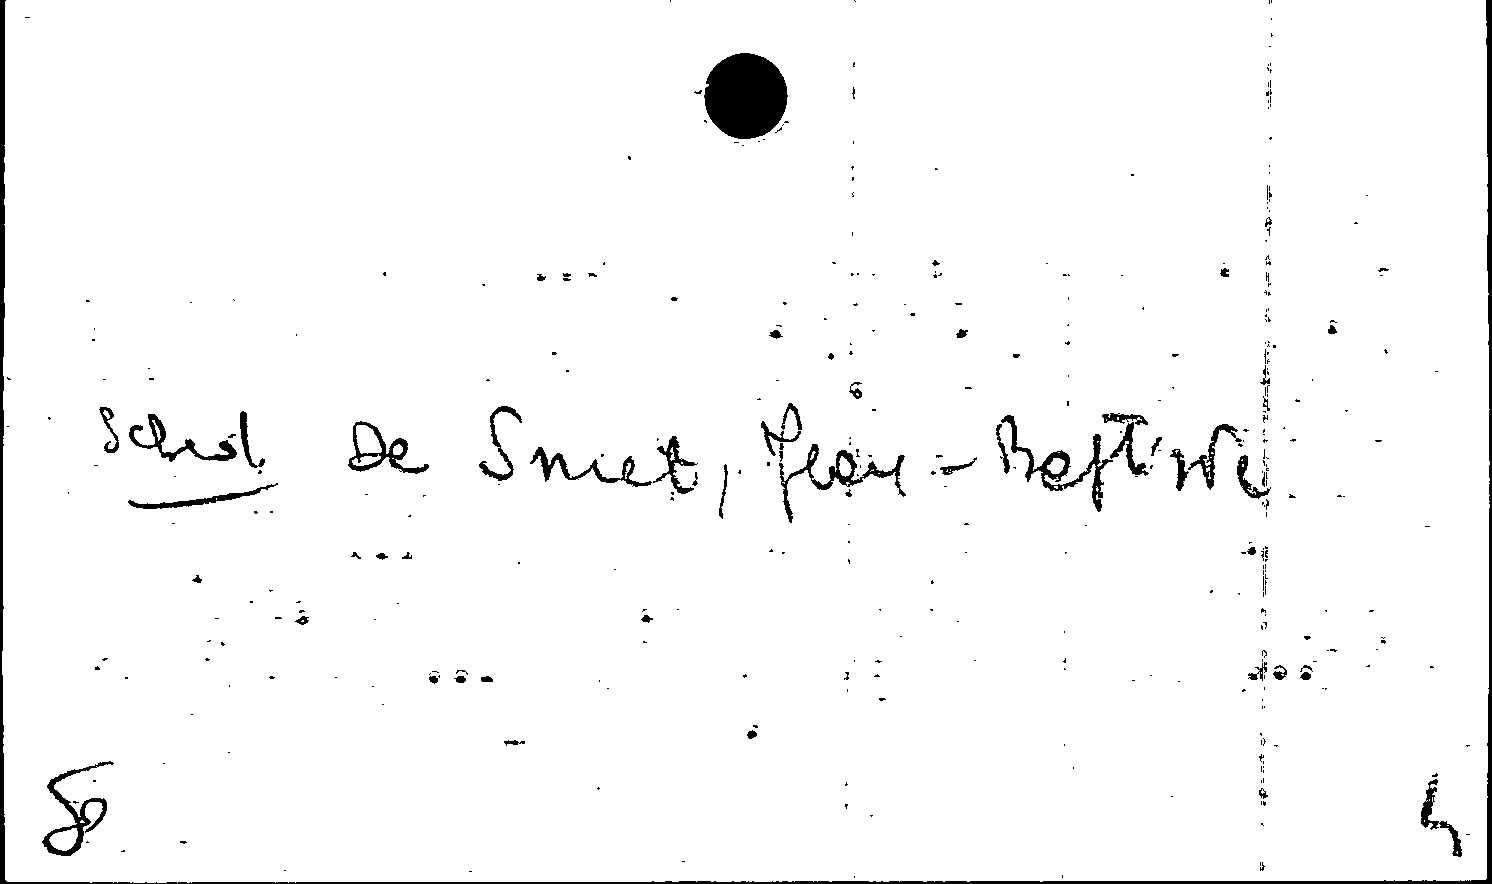 Schol. De Smet, Jean-Baptiste
50 4